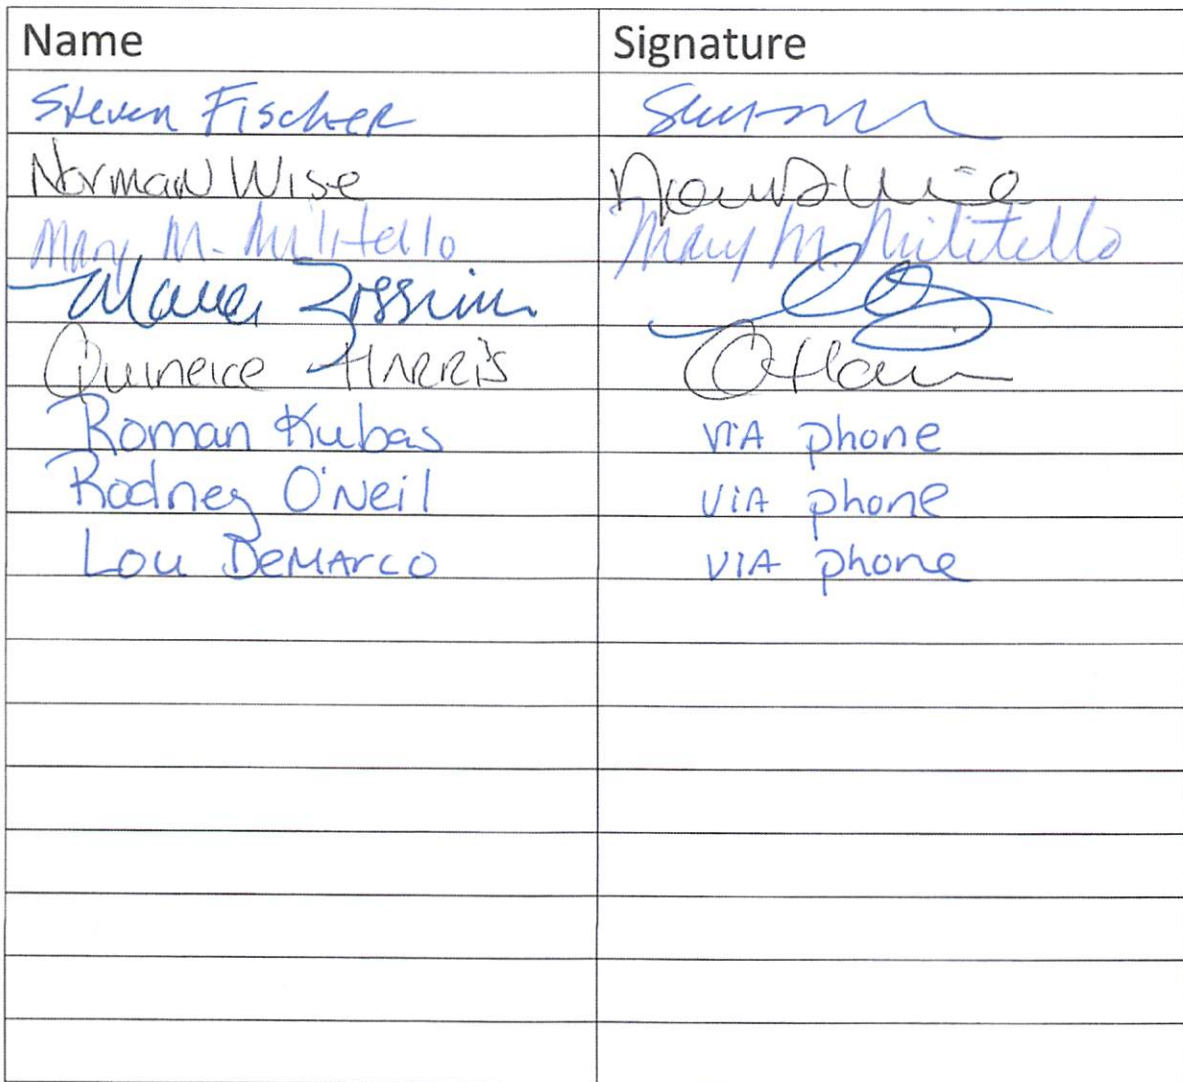 Name Signature
Steven Fischer
Norman Wise
Mary M. Militello Mary M. Militello
Quineice HARRIS
Roman Kubas VIA phone
Rodney O'Neil VIA phone
Lou DeMarco VIA phone